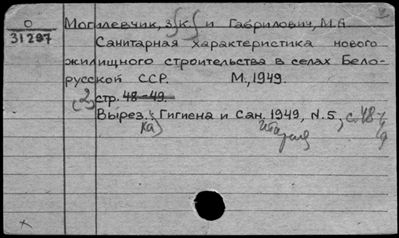 О
31297
Могилевчик, З.К. и Габрилович, М.А
Санитарная характеристика нового
жилищного строительства в селах Бело-
русской ССР. М., 1949.
(2) стр. 48-49.
Вырез. Гигиена и Сан. 1949, N.5, с. 48-
49
ка итария